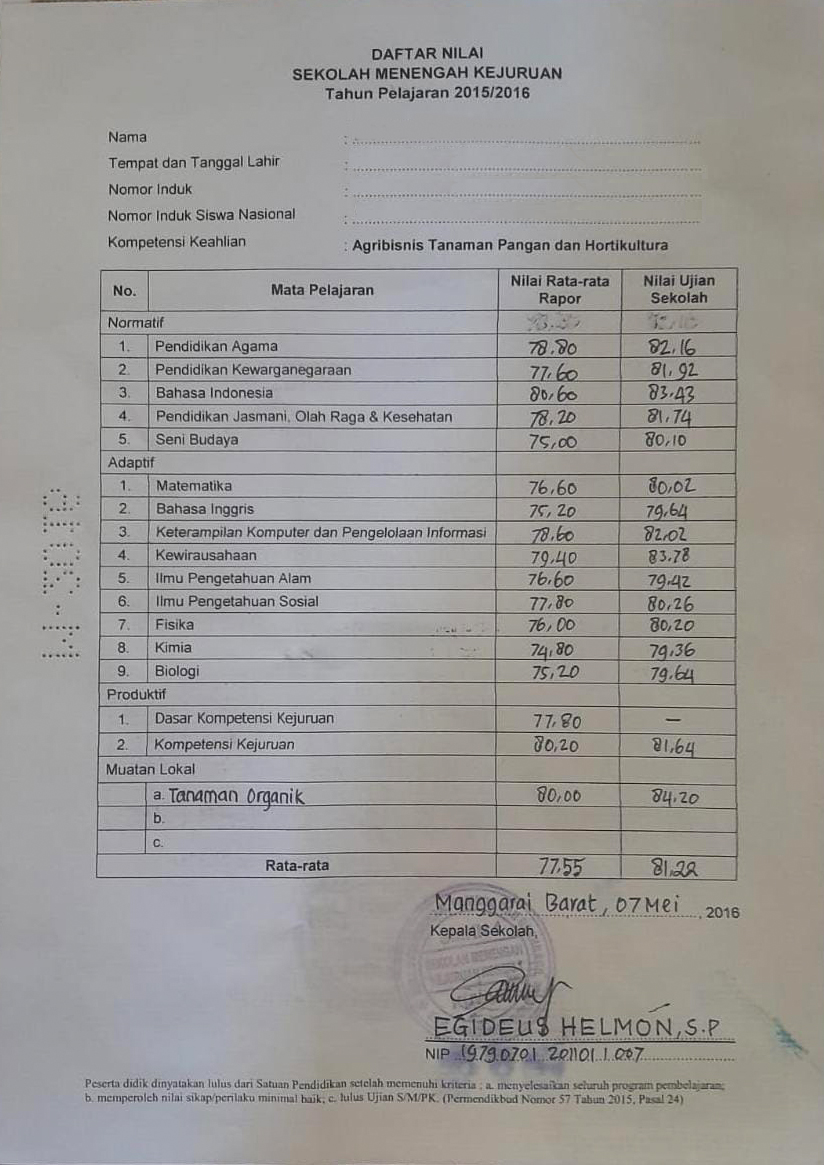 DAFTAR NILAI
SEKOLAH MENENGAH KEJURUAN
Tahun Pelajaran 2015/2016
Nama :
Tempat dan Tanggal Lahir :
Nomor Induk :
Nomor Induk Siswa Nasional :
Kompetensi Keahlian : Agribisnis Tanaman Pangan dan Hortikultura
No. Mata Pelajaran Nilai Rata-rata Rapor Nilai Ujian Sekolah
Normatif
1. Pendidikan Agama 78.80 82,16
2. Pendidikan Kewarganegaraan 77,60 81,92
3. Bahasa Indonesia 80,60 83.43
4. Pendidikan Jasmani, Olah Raga & Kesehatan 78,20 81,74
5. Seni Budaya 75,00 80,10
Adaptif
1. Matematika 76,60 80,02
2. Bahasa Inggris 75,20 79,64
3. Keterampilan Komputer dan Pengelolaan Informasi 78,60 82.02
4. Kewirausahaan 79,40 83.78
5. Ilmu Pengetahuan Alam 76,60 79,42
6. Ilmu Pengetahuan Sosial 77,80 80,26
7. Fisika 76,00 80,20
8. Kimia 74,80 79,36
9. Biologi 75,20 79,64
Produktif
1. Dasar Kompetensi Kejuruan 77,80 —
2. Kompetensi Kejuruan 80,20 81,64
Muatan Lokal
a. Tanaman Organik 80,00 84,20
b.
c.
Rata-rata 77,55 81,22
Manggarai Barat, 07 Mei, 2016
Kepala Sekolah,
SEKOLAH MENENGAH
EGIDEUS HELMON, S.P
NIP 19790701 201101 1 007
Peserta didik dinyatakan lulus dari Satuan Pendidikan setelah memenuhi kriteria : a. menyelesaikan seluruh program pembelajaran;
b. memperoleh nilai sikap/perilaku minimal baik; c. lulus Ujian S/M/PK. (Permendikbud Nomor 57 Tahun 2015, Pasal 24)